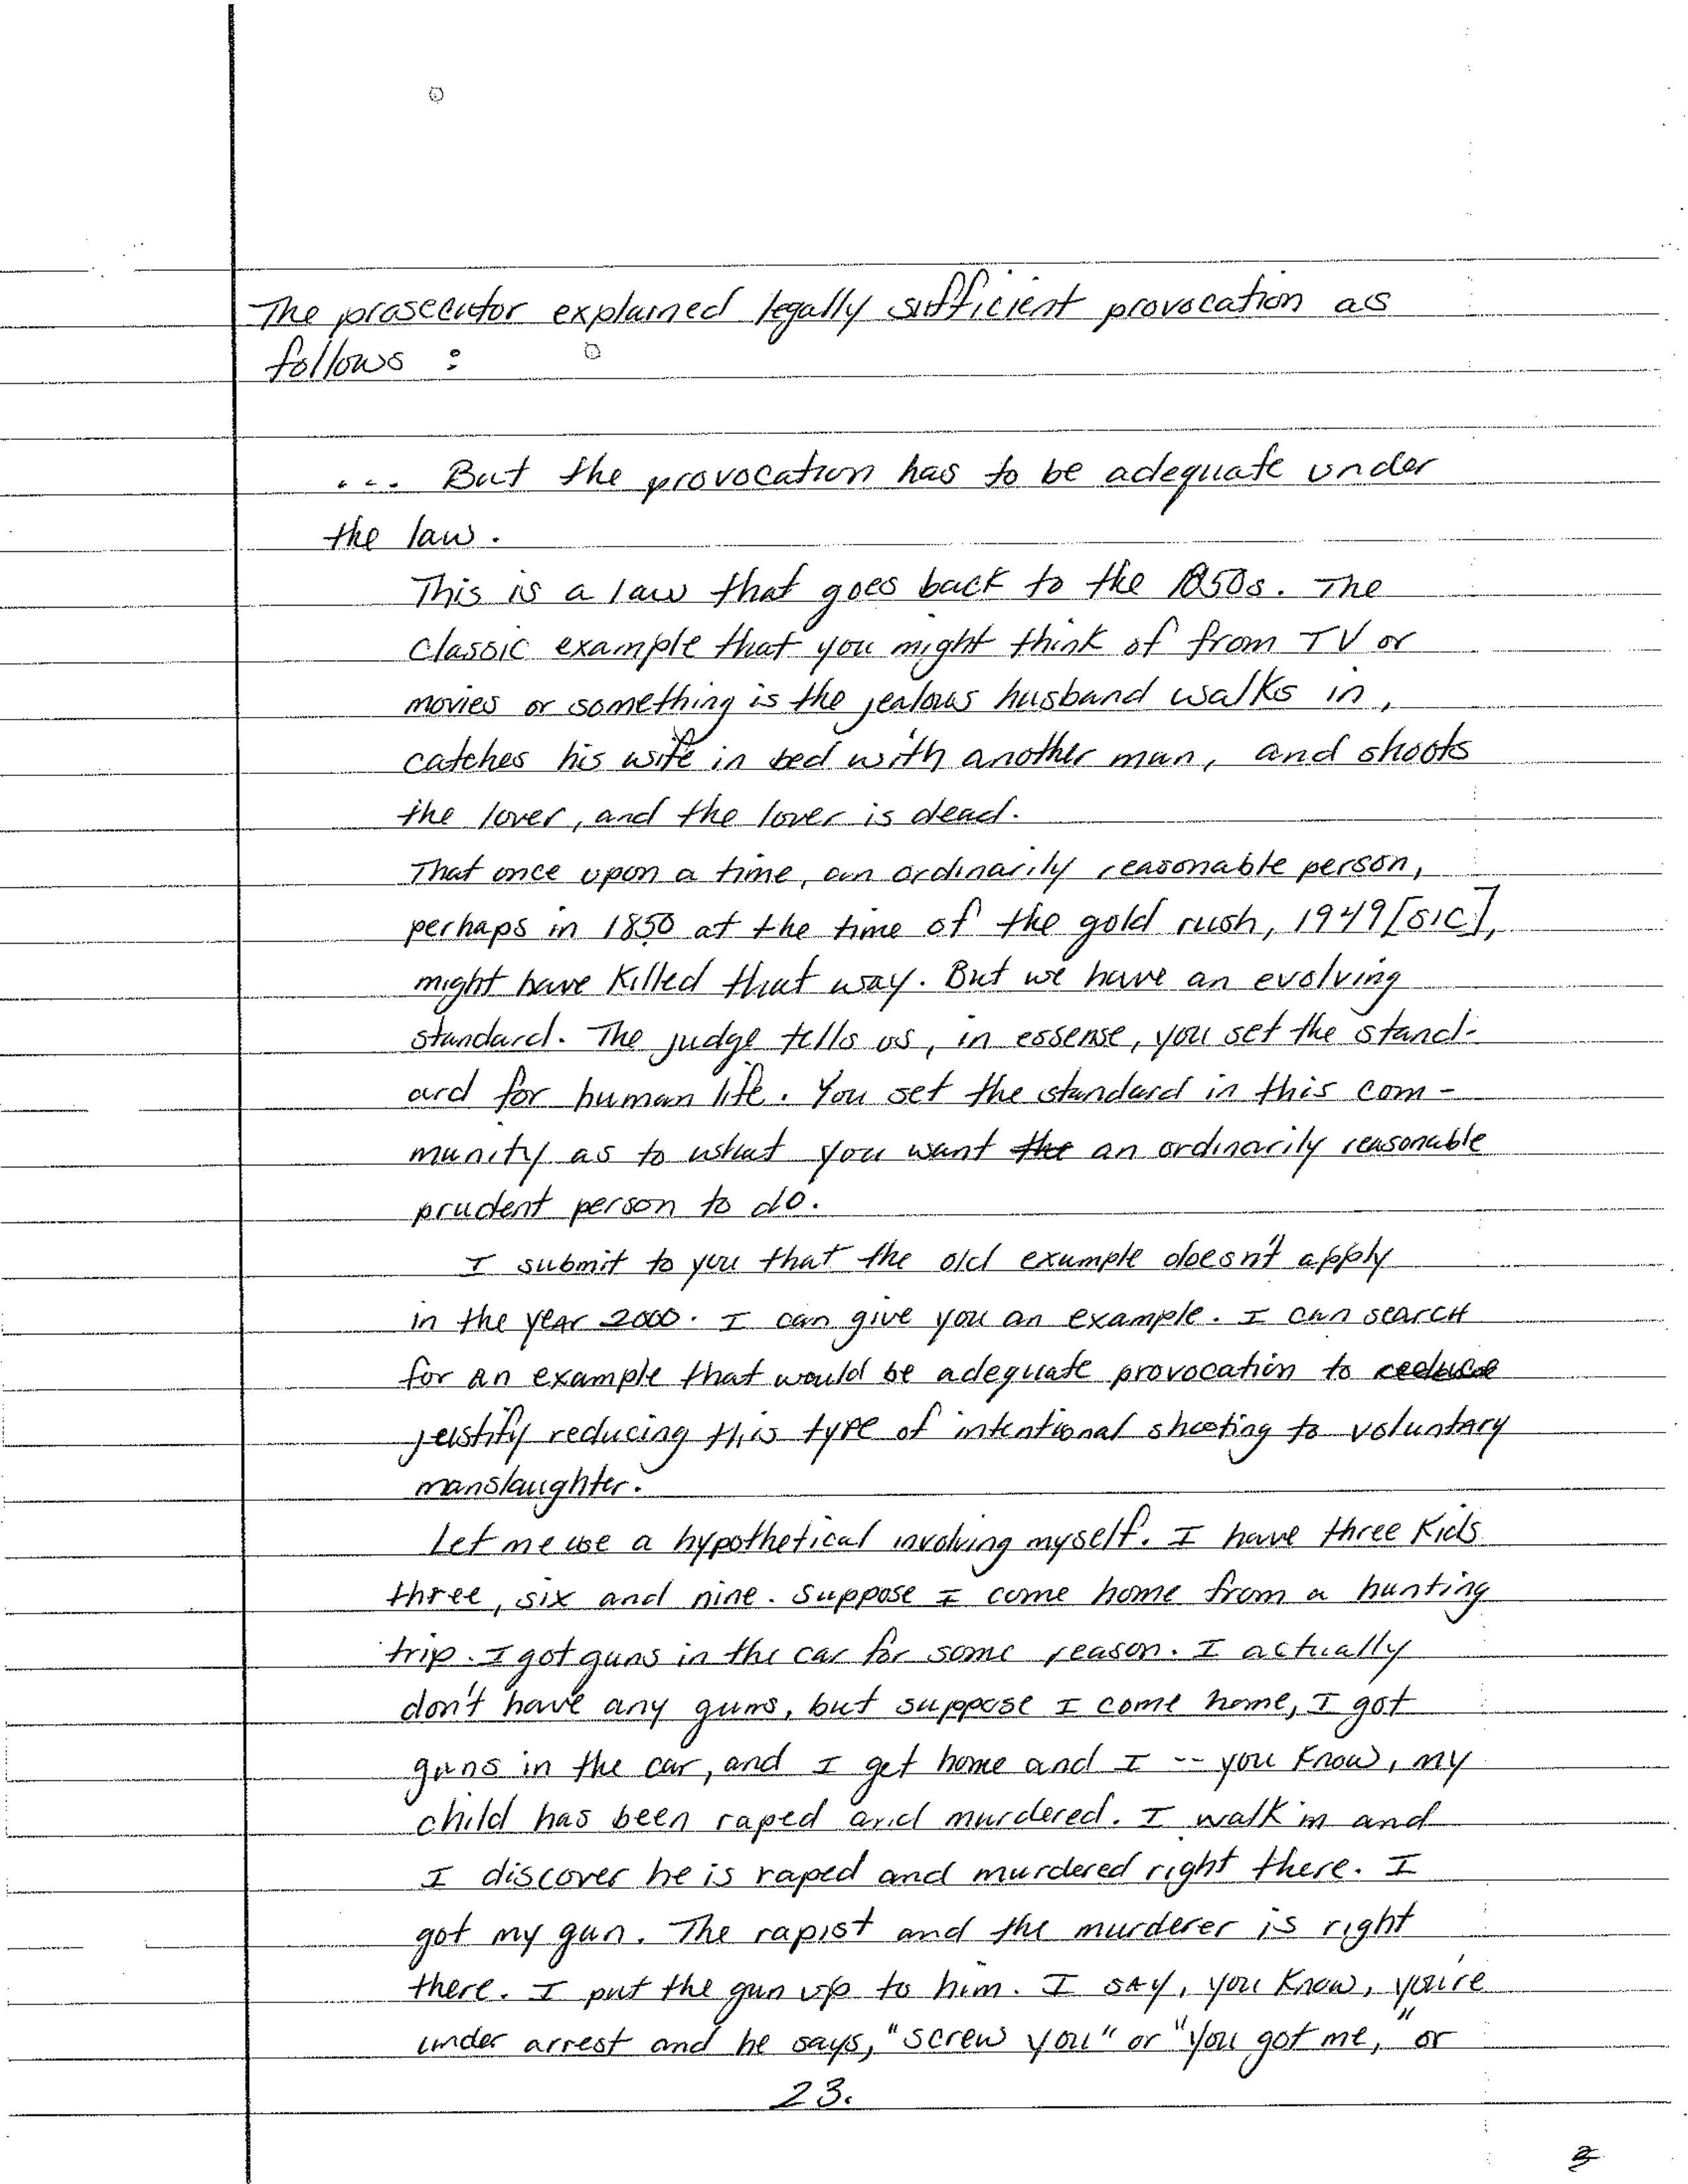 The prosecutor explained legally sufficient provocation as
follows :
... But the provocation has to be adequate under
the law.
This is a law that goes back to the 1850s. The
classic example that you might think of from TV or
movies or something is the jealous husband walks in,
catches his wife in bed with another man, and shoots
the lover, and the lover is dead.
That once upon a time, an ordinarily reasonable person,
perhaps in 1850 at the time of the gold rush, 1949 [SIC],
might have killed that way. But we have an evolving
standard. The judge tells us, in essense, you set the stand-
ard for human life. You set the standard in this com-
munity as to what you want the an ordinarily reasonable
prudent person to do.
I submit to you that the old example doesn't apply
in the year 2000. I can give you an example. I can search
for an example that would be adequate provocation to reduce
justify reducing this type of intentional shooting to voluntary
manslaughter.
Let me use a hypothetical involving myself. I have three kids
three, six and nine. Suppose I come home from a hunting
trip. I got guns in the car for some reason. I actually
don't have any guns, but suppose I come home, I got
guns in the car, and I get home and I -- you know, my
child has been raped and murdered. I walk in and
I discover he is raped and murdered right there. I
got my gun. The rapist and the murderer is right
there. I put the gun up to him. I say, you know, you're
under arrest and he says, "screw you" or "you got me," or
23.